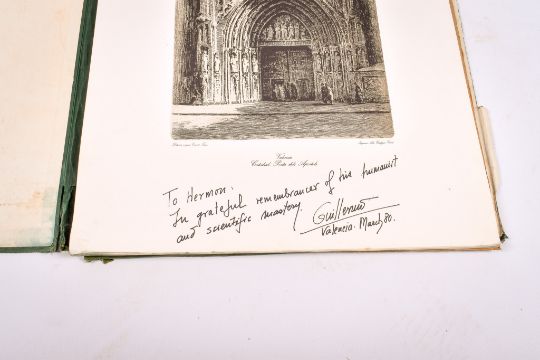 Valencia
Catedral. Porta dels Apostols
To Hermon.
In grateful remembrances of his humanist
and scientific mastery.
Guillermo
Valencia. March, 80.